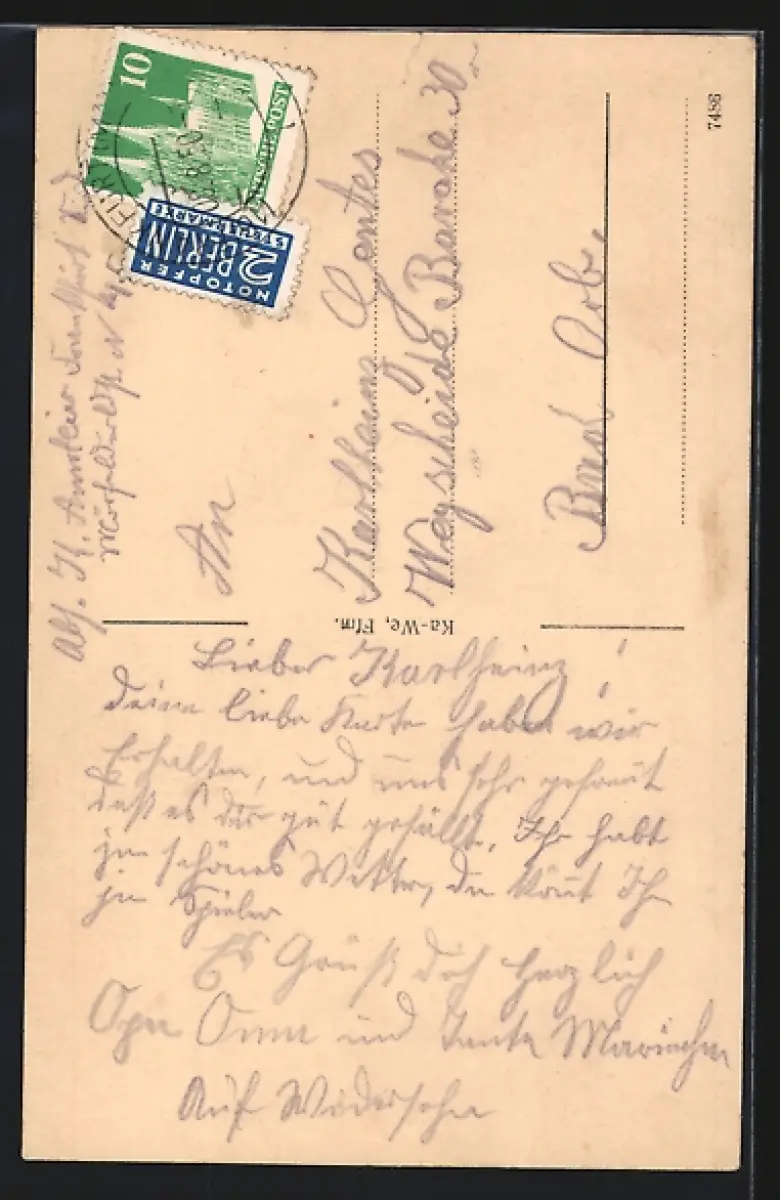 10
DEUTSCHE POST
NOTOPFER
2 BERLIN
STEUERMARKE
8.50
7486
Abs. K.
An
Karlheinz Gentes
Wegscheide Barake 30.
Bad Orb.
Ka-We, Ffm.
Lieber Karlheinz!
Deine liebe Karte haben wir
Erhalten, und uns sehr gefreut
daß es dir gut gefällt, Ihr habt
ja schönes Wetter, da könnt Ihr
ja Spielen
Es Grüßt dich Herzlich
Opa Oma und Tante Mariechen
Auf Widersehn